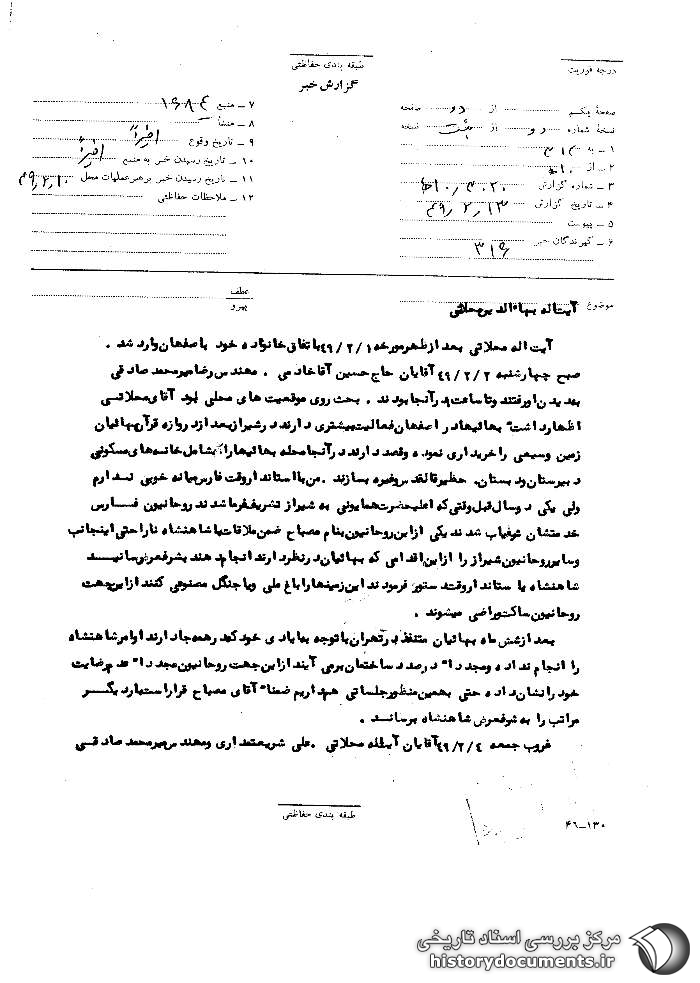 طبقه بندی حفاظتی
گزارش خبر
درجه فوریت
صفحهٔ یکم از دو صفحه
نسخهٔ شماره دو از نسخه
۱ ـ به ۳۱۲
۲ ـ از
۳ ـ شماره گزارش
۴ ـ تاریخ گزارش ۴۹٫۲٫۱۳
۵ ـ پیوست
۶ ـ گیرندگان خبر ۳۱۶
۷ ـ منبع ۱۶۸۴
۸ ـ منشأ
۹ ـ تاریخ وقوع اخیراً
۱۰ ـ تاریخ رسیدن خبر به منبع اخیراً
۱۱ ـ تاریخ رسیدن خبر برهبر عملیات محل ۴۹٫۲٫۱۰
۱۲ ـ ملاحظات حفاظتی
موضوع آیت‌اله بهاالدین محلاتی
عطف
پیرو
آیت اله محلاتی بعد از ظهر مورخه ۴۹/۲/۱ باتفاق خانواده خود باصفهان وارد شد .
صبح چهارشنبه ۴۹/۲/۲ آقایان حاج حسین آقا خادمی . مهندس رضا میرمحمد صادقی
بدیدن او رفتند و تا ساعت در آنجا بودند . بحث روی موقعیت های محلی بود آقای محلاتی
اظهار داشت بهائیها در اصفهان فعالیت بیشتری دارند در شیراز بعد از دروازه قرآن بهائیان
زمین وسیعی را خریداری نموده و قصد دارند در آنجا محله بهائیها را شامل خانه های مسکونی
دبیرستان و دبستان، حظیرةالقدس و غیره بسازند . من با استاندار وقت فارس میانه خوبی ندارم
ولی یکی دو سال قبل وقتی که اعلیحضرت همایونی به شیراز تشریف فرما شدند روحانیون فارس
خدمتشان شرفیاب شدند یکی از این روحانیون بنام مصباح ضمن ملاقات با شاهنشاه ناراحتی اینجانب
و سایر روحانیون شیراز را از این اقدامی که بهائیان در نظر دارند انجام دهند بشرفعرض رسانید
شاهنشاه با ستاندار وقت دستور فرمودند این زمینها را باغ ملی و یا جنگل مصنوعی کنند از این جهت
روحانیون ساکت و راضی میشوند .
بعد از شش ماه بهائیان متنفذ در تهران با توجه به ایادی خود که در همه جا دارند اوامر شاهنشاه
را انجام نداده و مجدداً در صدد ساختمان برمی آیند از این جهت روحانیون مجدداً عدم رضایت
خود را نشان داده حتی بهمین منظور جلساتی هم داریم ضمناً آقای مصباح قرار است بار دیگر
مراتب را به شرفعرض شاهنشاه برساند .
غروب جمعه ۴۹/۲/۴ آقایان آیت‌اله محلاتی . علی شریعتمداری و مهندس میرمحمد صادقی
طبقه بندی حفاظتی
۴۶-۱۳۰
مرکز بررسی اسناد تاریخی
historydocuments.ir